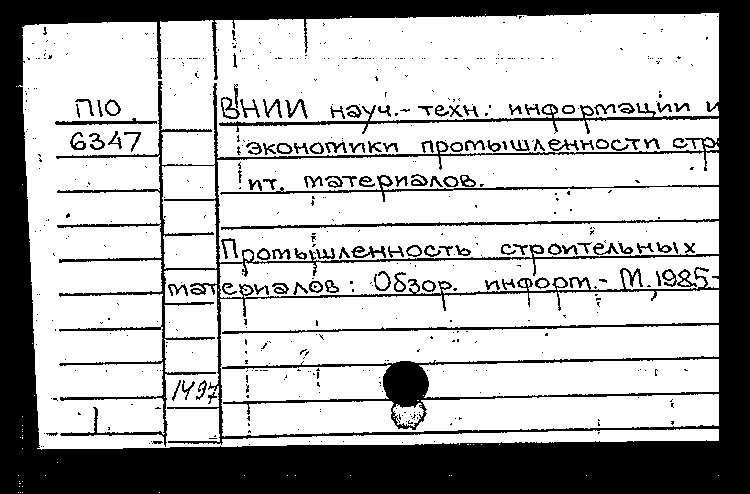 П10.
6347
ВНИИ науч.-техн. информации и
экономики промышленности стро
ит. материалов.
Промышленность строительных
материалов: Обзор. информ.- М., 1985-
1497